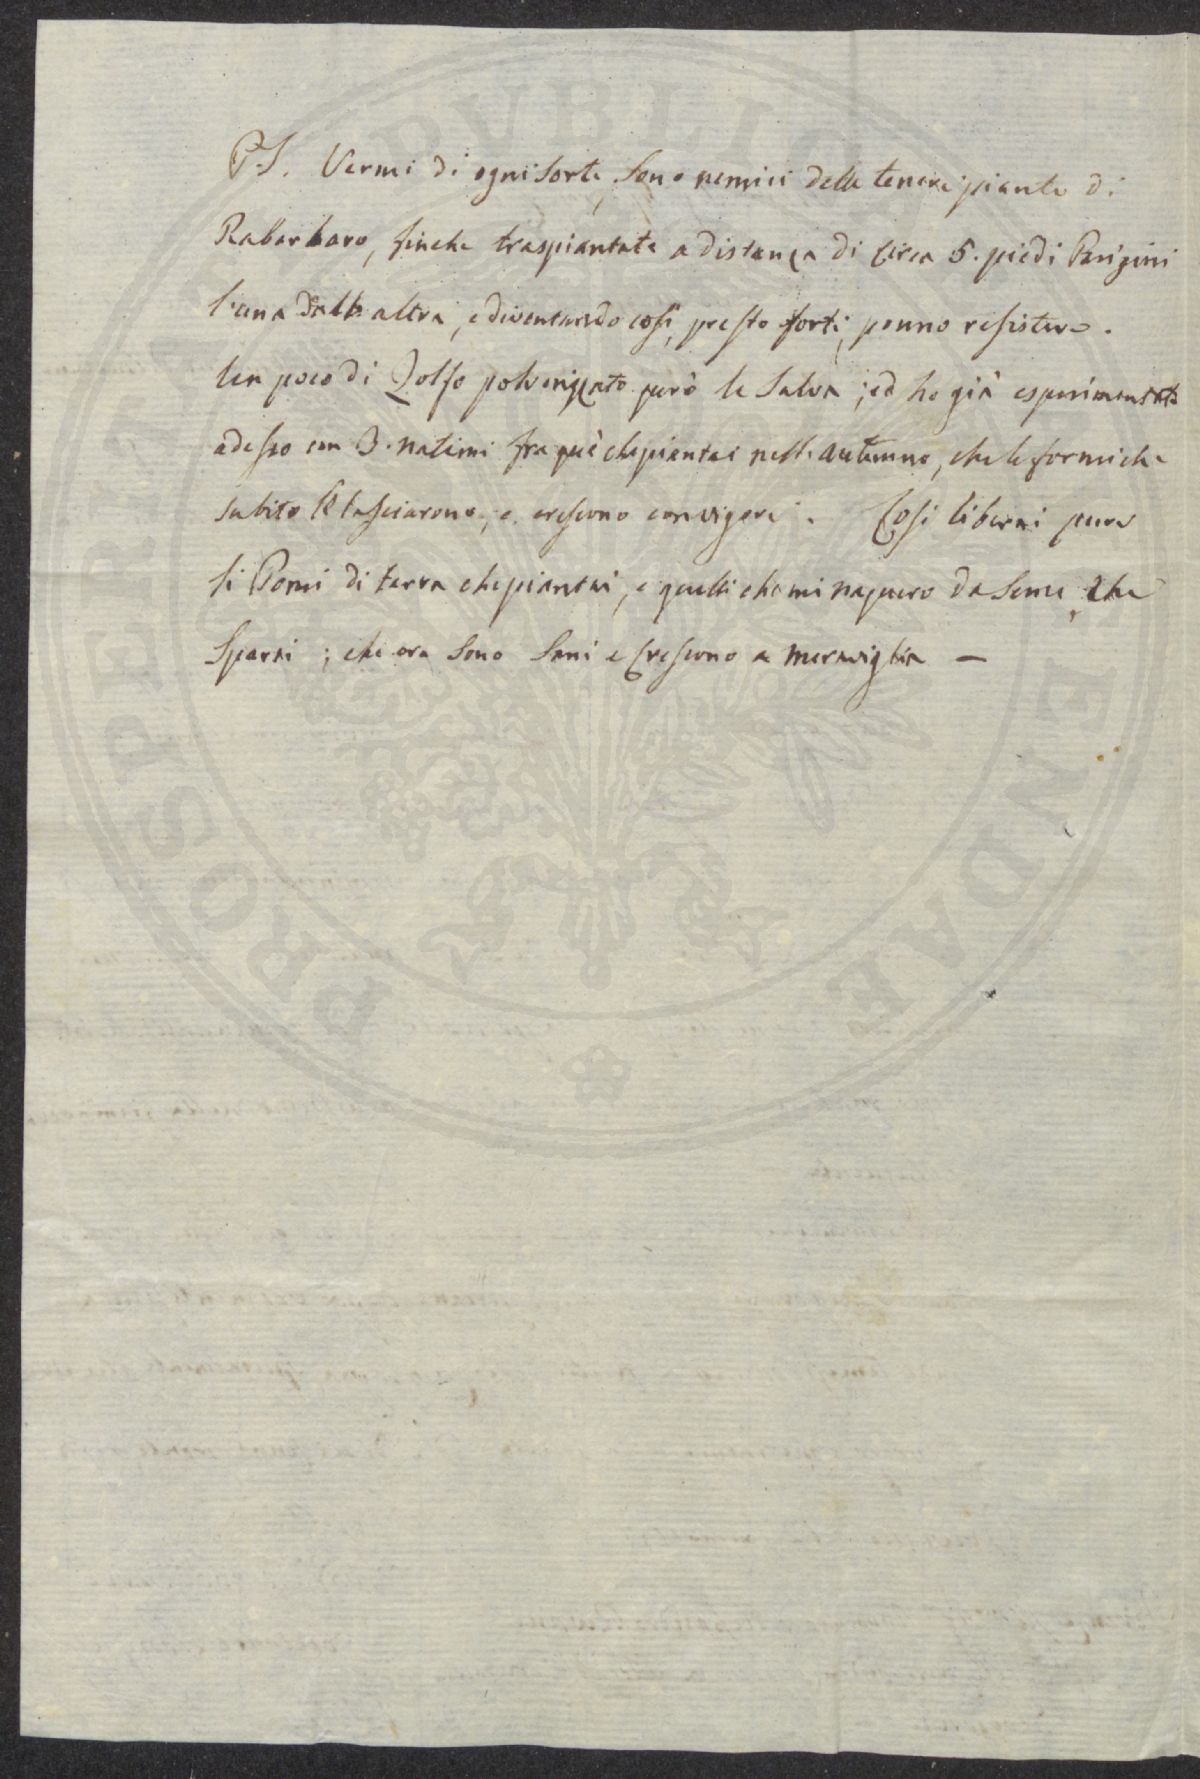 P.S. Vermi di ogni Sorte, Sono nemici delle tenere piante di
Rabarbaro, finche traspiantate a distanza di circa 5. piedi Parigini
l'una dall altra, e diventando cosi, presto forti, ponno resistere.
Un poco di Zolfo polverizzato però le Salva; ed ho già esperimentato
adesso con 3. fra più che piantai nell autunno, che le formiche
subito le lasciarono, e crescono con vigore. Cosi liberai pure
li Pomi di terra che piantai, e quelli che mi nacquero da Seme che
Sparsi; che ora Sono Sani e Crescono a meraviglia —
PROSPER PVBLIC ENDAE